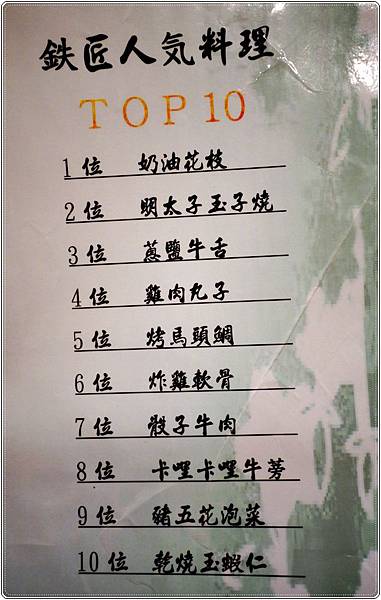 鉄匠人気料理
TOP10
1位 奶油花枝
2位 明太子玉子燒
3位 蔥鹽牛舌
4位 雞肉丸子
5位 烤馬頭鯛
6位 炸雞軟骨
7位 骰子牛肉
8位 卡哩卡哩牛蒡
9位 豬五花泡菜
10位 乾燒玉蝦仁